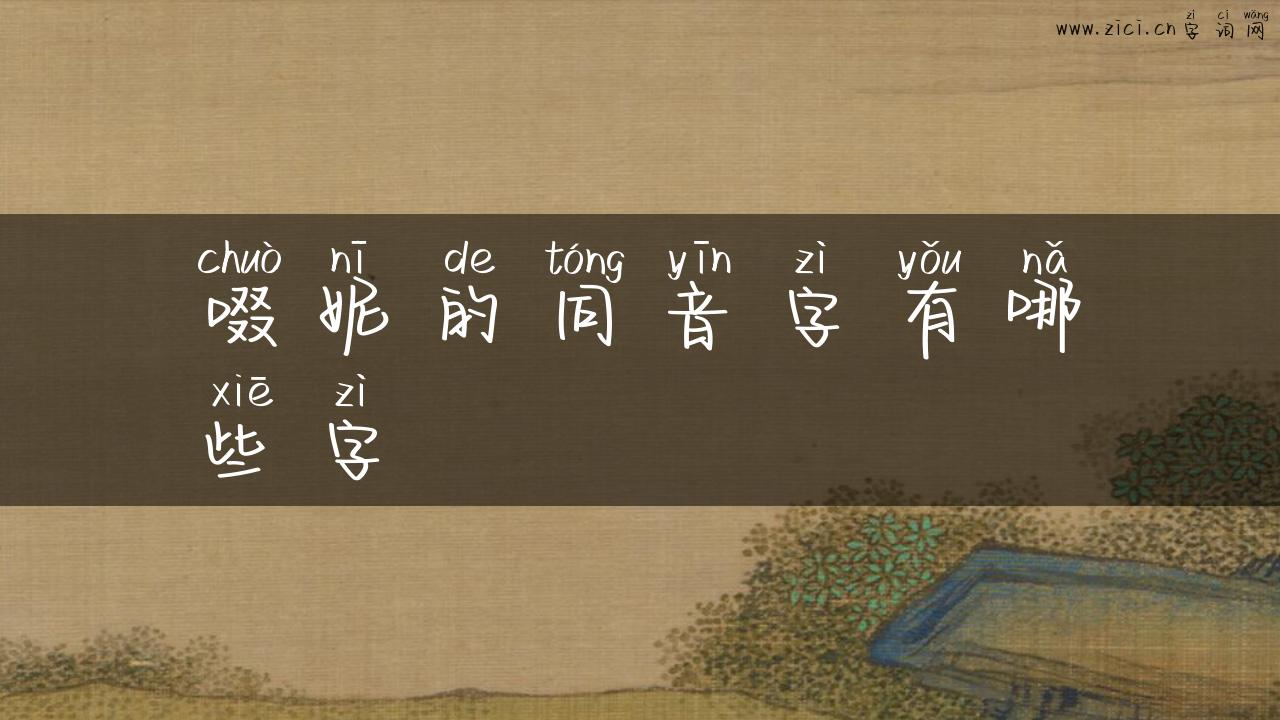 www.zici.cn 字词网
zì cí wǎng
chuò nī de tóng yīn zì yǒu nǎ
啜妮的同音字有哪
xiē zì
些字